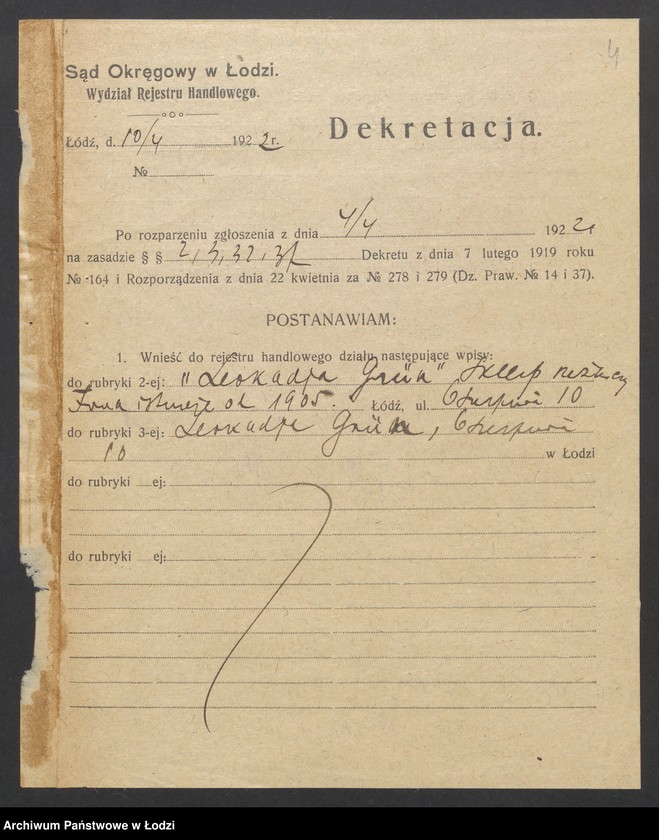 4
Sąd Okręgowy w Łodzi.
Wydział Rejestru Handlowego.
Łódź, d. 10/4 1922 r.
Dekretacja.
№
Po rozparzeniu zgłoszenia z dnia 4/4 1922 r
na zasadzie § § 2, 3, 32, Dekretu z dnia 7 lutego 1919 roku
№ 164 i Rozporządzenia z dnia 22 kwietnia za № 278 i 279 (Dz. Praw. № 14 i 37).
POSTANAWIAM:
1. Wnieść do rejestru handlowego działu następujące wpisy:
do rubryki 2-ej: "Leokadja Grün" Sklep rzeźniczy
Firma istnieje od 1905. Łódź, ul. 10
do rubryki 3-ej: Leokadja Grün,
10 w Łodzi
do rubryki ej:
do rubryki ej:
Archiwum Państwowe w Łodzi